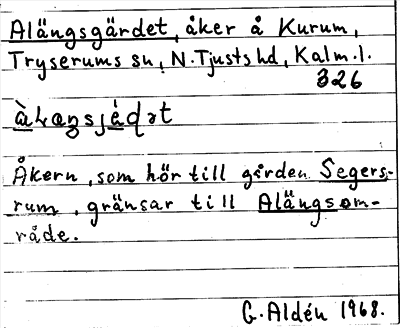 Alängsgärdet, åker å Kurum,
Tryserums sn, N. Tjusts hd, Kalm. l.
326
àlæŋsjèḍət
Åkern, som hör till gården Segers-
rum, gränsar till Alängsom-
råde.
G. Aldén 1968.